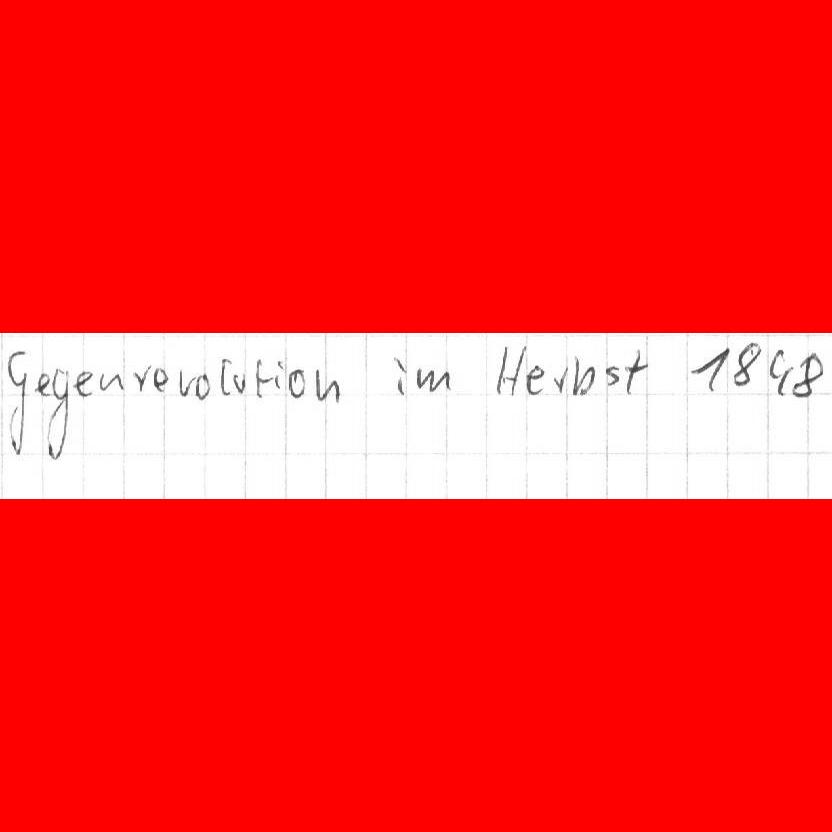 Gegenrevolution im Herbst 1848